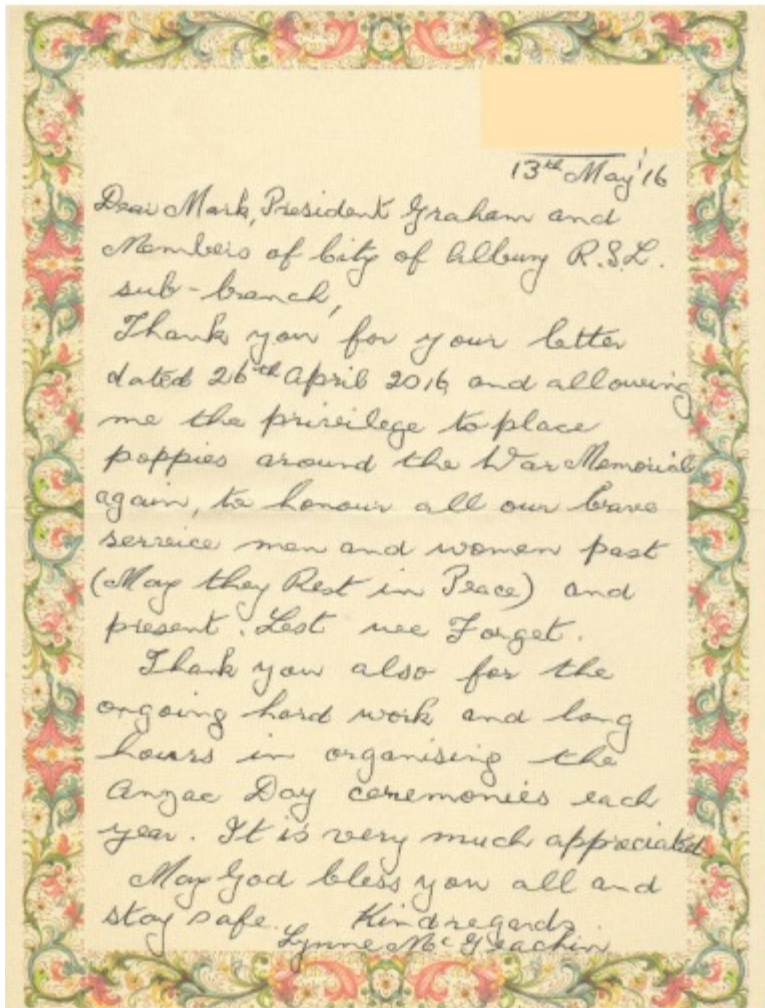 13th May '16
Dear Mark, President Graham and
Members of City of Albury R.S.L.
sub-branch,
Thank you for your letter
dated 26th April 2016, and allowing
me the privilege to place
poppies around the War Memorial
again, to honour all our brave
service men and women past
(May they Rest in Peace) and
present. Lest we Forget.
Thank you also for the
ongoing hard work and long
hours in organising the
Anzac Day ceremonies each
year. It is very much appreciated
May God bless you all and
stay safe. Kind regards.
Lynne McGeachin